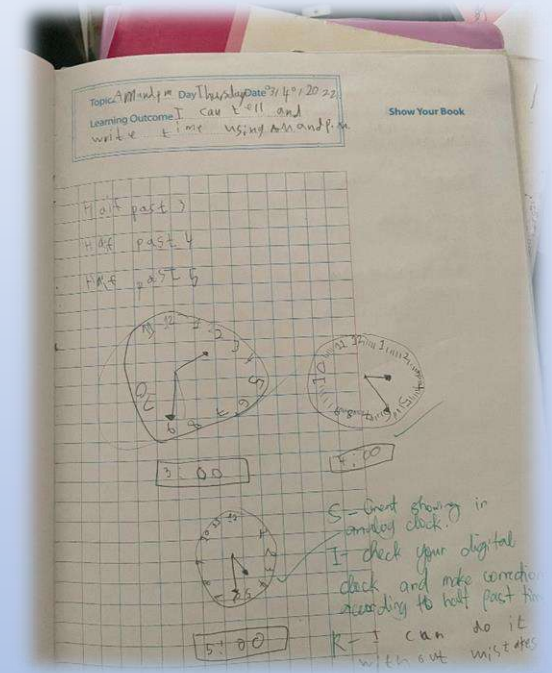 Topic AM and pm Day Thursday Date 31 4 2022
Show Your Book
Learning Outcome I can tell and
write time using am and p.m
Half past 3
Haf past 4
Haf past 5
12 1 2 3 4 5 6 7 8 9 10 11
3:00
:00
5:00
S- Great showing in
analog clock.
I- check your digital
clock and make correction
according to half past time
R- I can do it
without mistakes